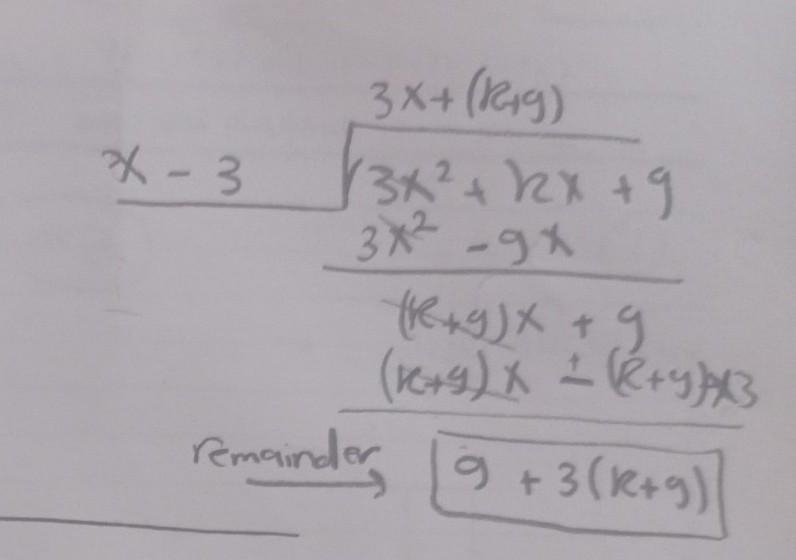 3x+(k+9)
x - 3
3x² + kx + 9
3x² - 9x
(k+9)x + 9
(k+9)x - (k+9)×3
remainder →
9 + 3(k+9)